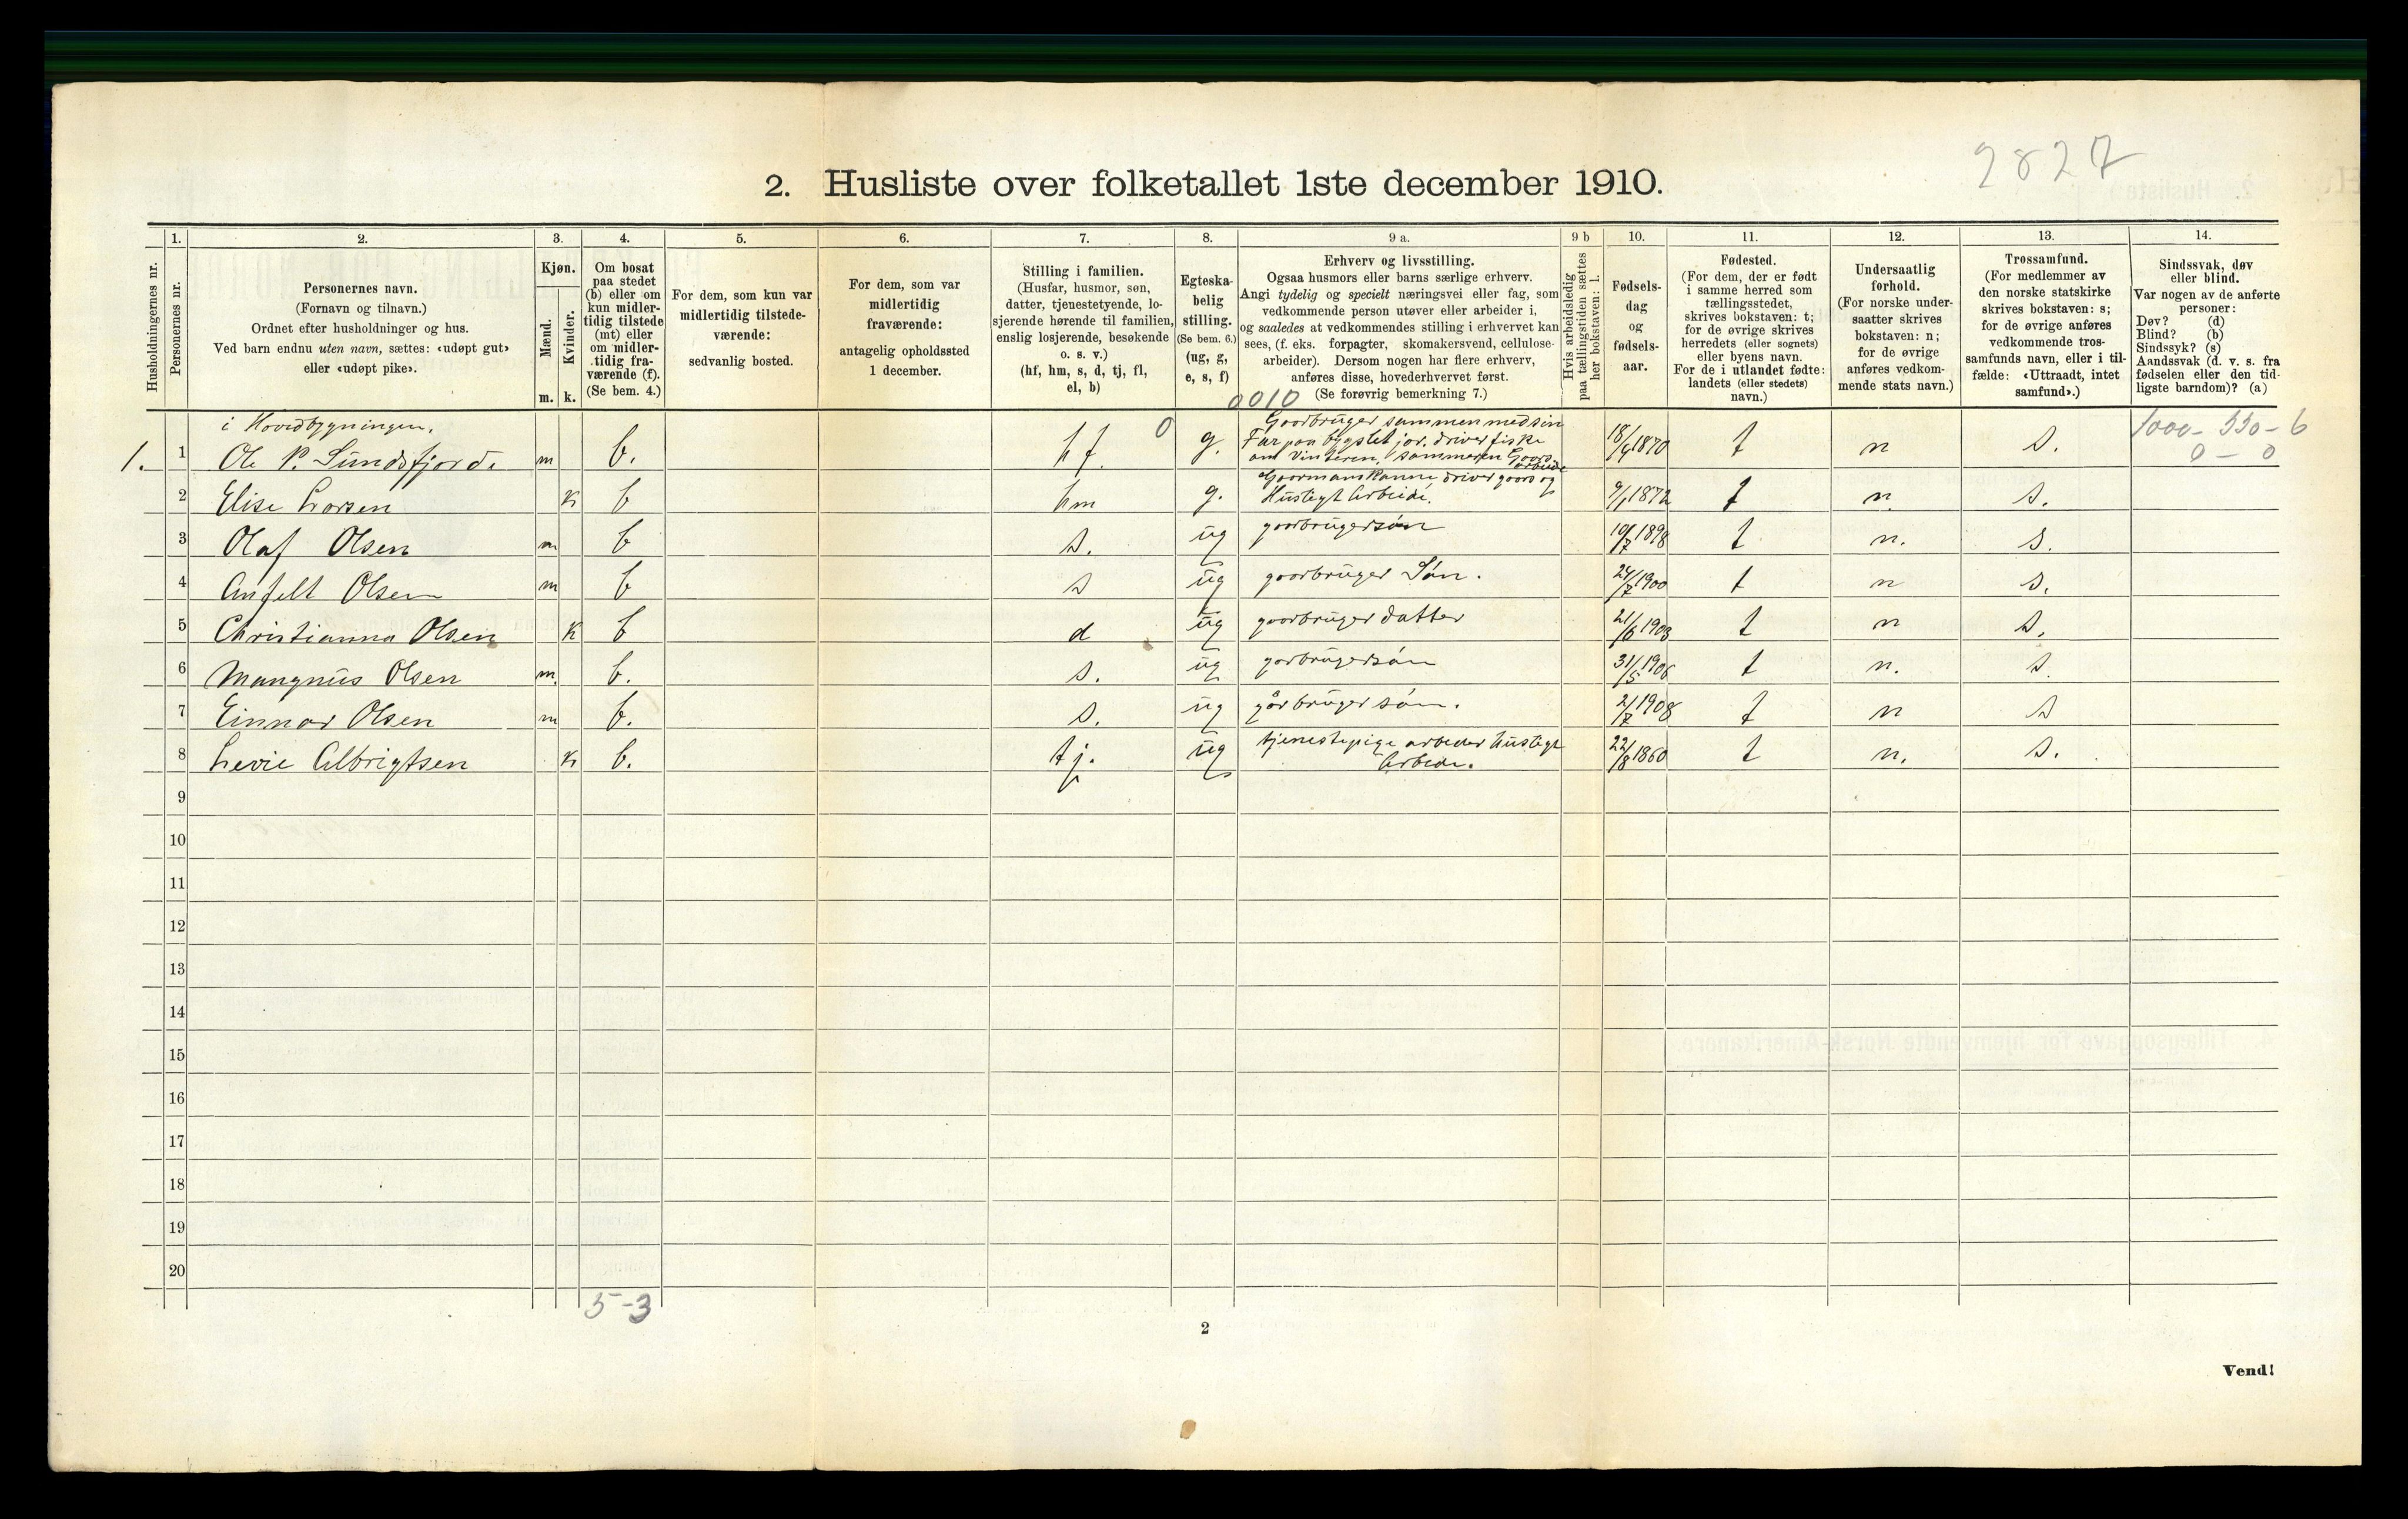 2827
2. Husliste over folketallet 1ste december 1910.
Husholdningernes nr.
1.
Personernes nr.
2.
Personernes navn.
(Fornavn og tilnavn.)
Ordnet efter husholdninger og hus.
Ved barn endnu uten navn, sættes: «udøpt gut»
eller «udøpt pike».
3.
Kjøn.
Mænd.
Kvinder.
m. k.
4.
Om bosat
paa stedet
(b) eller om
kun midler-
tidig tilstede
(mt) eller
om midler-
tidig fra-
værende (f).
(Se bem. 4.)
5.
For dem, som kun var
midlertidig tilstede-
værende:
sedvanlig bosted.
6.
For dem, som var
midlertidig
fraværende:
antagelig opholdssted
1 december.
7.
Stilling i familien.
(Husfar, husmor, søn,
datter, tjenestetyende, lo-
sjerende hørende til familien,
enslig losjerende, besøkende
o. s. v.)
(hf, hm, s, d, tj, fl,
el, b)
8.
Egteska-
belig
stilling.
(Se bem. 6.)
(ug, g,
e, s, f)
9 a.
Erhverv og livsstilling.
Ogsaa husmors eller barns særlige erhverv.
Angi tydelig og specielt næringsvei eller fag, som
vedkommende person utøver eller arbeider i,
og saaledes at vedkommendes stilling i erhvervet kan
sees, (f. eks. forpagter, skomakersvend, cellulose-
arbeider). Dersom nogen har flere erhverv,
anføres disse, hovederhvervet først.
(Se forøvrig bemerkning 7.)
0010
9 b
Hvis arbeidsledig
paa tællingstiden sættes
her bokstaven: l.
10.
Fødsels-
dag
og
fødsels-
aar.
11.
Fødested.
(For dem, der er født
i samme herred som
tællingsstedet,
skrives bokstaven: t;
for de øvrige skrives
herredets (eller sognets)
eller byens navn.
For de i utlandet fødte:
landets (eller stedets)
navn.)
12.
Undersaatlig
forhold.
(For norske under-
saatter skrives
bokstaven: n;
for de øvrige
anføres vedkom-
mende stats navn.)
13.
Trossamfund.
(For medlemmer av
den norske statskirke
skrives bokstaven: s;
for de øvrige anføres
vedkommende tros-
samfunds navn, eller i til-
fælde: «Uttraadt, intet
samfund».)
14.
Sindssvak, døv
eller blind.
Var nogen av de anførte
personer:
Døv? (d)
Blind? (b)
Sindssyk? (s)
Aandssvak (d. v. s. fra
fødselen eller den tid-
ligste barndom)? (a)
i Hovedbygningen.
1. 1 Ole P. Sundsfjord. m b. hf. 0 g. Goorbruger sammen med sin
Far paa bygslet jor. driver fiske
om Vinteren, sommeren Goors
arbeide 18/9 1870 t n s. 1000-550-6
0-0
2 Elise Larsen K b hm g. Goormans Kanne driver goors og
Husligt Arbeide. 9/1 1872 t n. s.
3 Olaf Olsen m b s. ug goorbrugersøn 10/7 1898 t n. s.
4 Anfelt Olsen m b s ug goorbruger Søn. 24/7 1900 t n s.
5 Christianna Olsen K b d ug goorbruger datter 21/6 1903 t n s.
6 Mangnus Olsen m. b. s. ug gorbrugersøn 31/5 1906 t n. s.
7 Einnar Olsen m b. s. ug gårbruger søn. 2/7 1908 t n s
8 Levie Albrigtsen K b. tj. ug tjenestepige arbeder Husligt
Arbede. 22/8 1860 t n. s.
9
10
11
12
13
14
15
16
17
18
19
20
5-3
2
Vend!